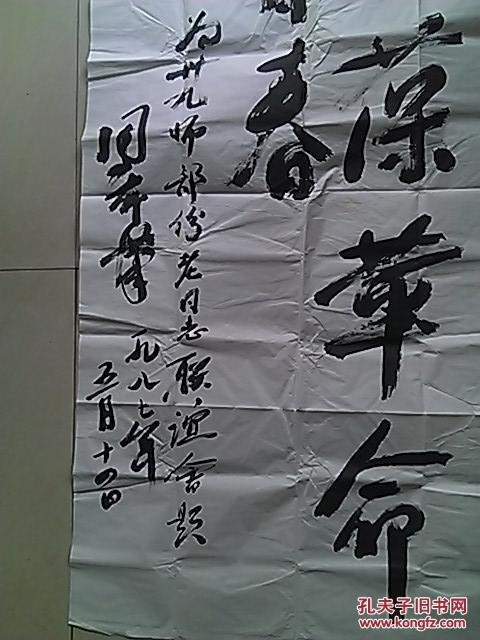 葆革命
春
为卅九师部份老同志联谊会题
一九八七年
五月十四日
孔夫子旧书网
www.kongfz.com